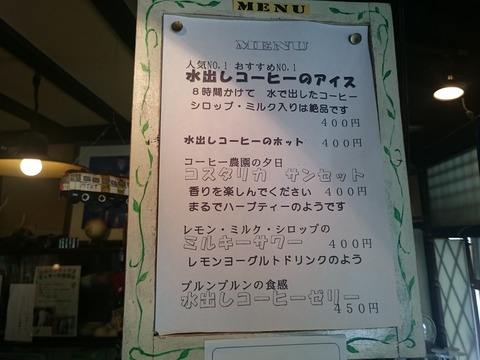 MENU
MENU
人気NO.1 おすすめNO.1
水出しコーヒーのアイス
8時間かけて 水で出したコーヒー
シロップ・ミルク入りは絶品です
400円
水出しコーヒーのホット 400円
コーヒー農園の夕日
コスタリカ サンセット
香りを楽しんでください 400円
まるでハーブティーのようです
レモン・ミルク・シロップの
ミルキーサワー 400円
レモンヨーグルトドリンクのよう
プルンプルンの食感
水出しコーヒーゼリー
450円